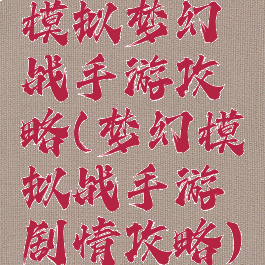 模拟梦幻
战手游攻
略(梦幻模
拟战手游
剧情攻略)